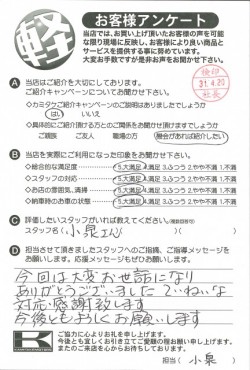 軽
お客様アンケート
当店では、お買い上げ頂いたお客様の声を可能
な限り現場に反映し、お客様により良い商品と
サービスを提供する事に努めています。
大変お手数ですが是非お声をお聞かせ下さい。
検印
31.4.20
社長
A 当店はご紹介を大切にしております。
ご紹介キャンペーンについてお聞かせ下さい。
◇カミタケご紹介キャンペーンのご説明はありましたでしょうか
はい いいえ
◇具体的にご紹介頂ける方とのご関係をお聞かせ頂けますでしょうか
ご親族 ご友人 職場の方 機会があれば紹介したい
B 当店を実際にご利用になった印象をお聞かせ下さい。
◇総合的な満足度 5.大満足 4.満足 3.ふつう 2.やや不満 1.不満
◇スタッフの対応 5.大満足 4.満足 3.ふつう 2.やや不満 1.不満
◇お店の雰囲気、清掃 5.大満足 4.満足 3.ふつう 2.やや不満 1.不満
◇納車時のお車の状態 5.大満足 4.満足 3.ふつう 2.やや不満 1.不満
C 評価したいスタッフがいれば教えてください。(複数回答可)
スタッフ名( 小泉さん )
D 担当させて頂きましたスタッフへのご指摘、ご指導、応援メッセージを
お願いします。ご遠慮なくご指導、メッセージお願いいたします。
今回は大変お世話になり
ありがとうございました ていねいな
対応感謝致します
今後ともよろしくお願いします
K
ご協力に心よりお礼を申し上げます。
今後とも宜しくお引き立てご愛顧の程お願い申し上げます。
またのご来店を心からお待ちしております。
担当( 小泉 )